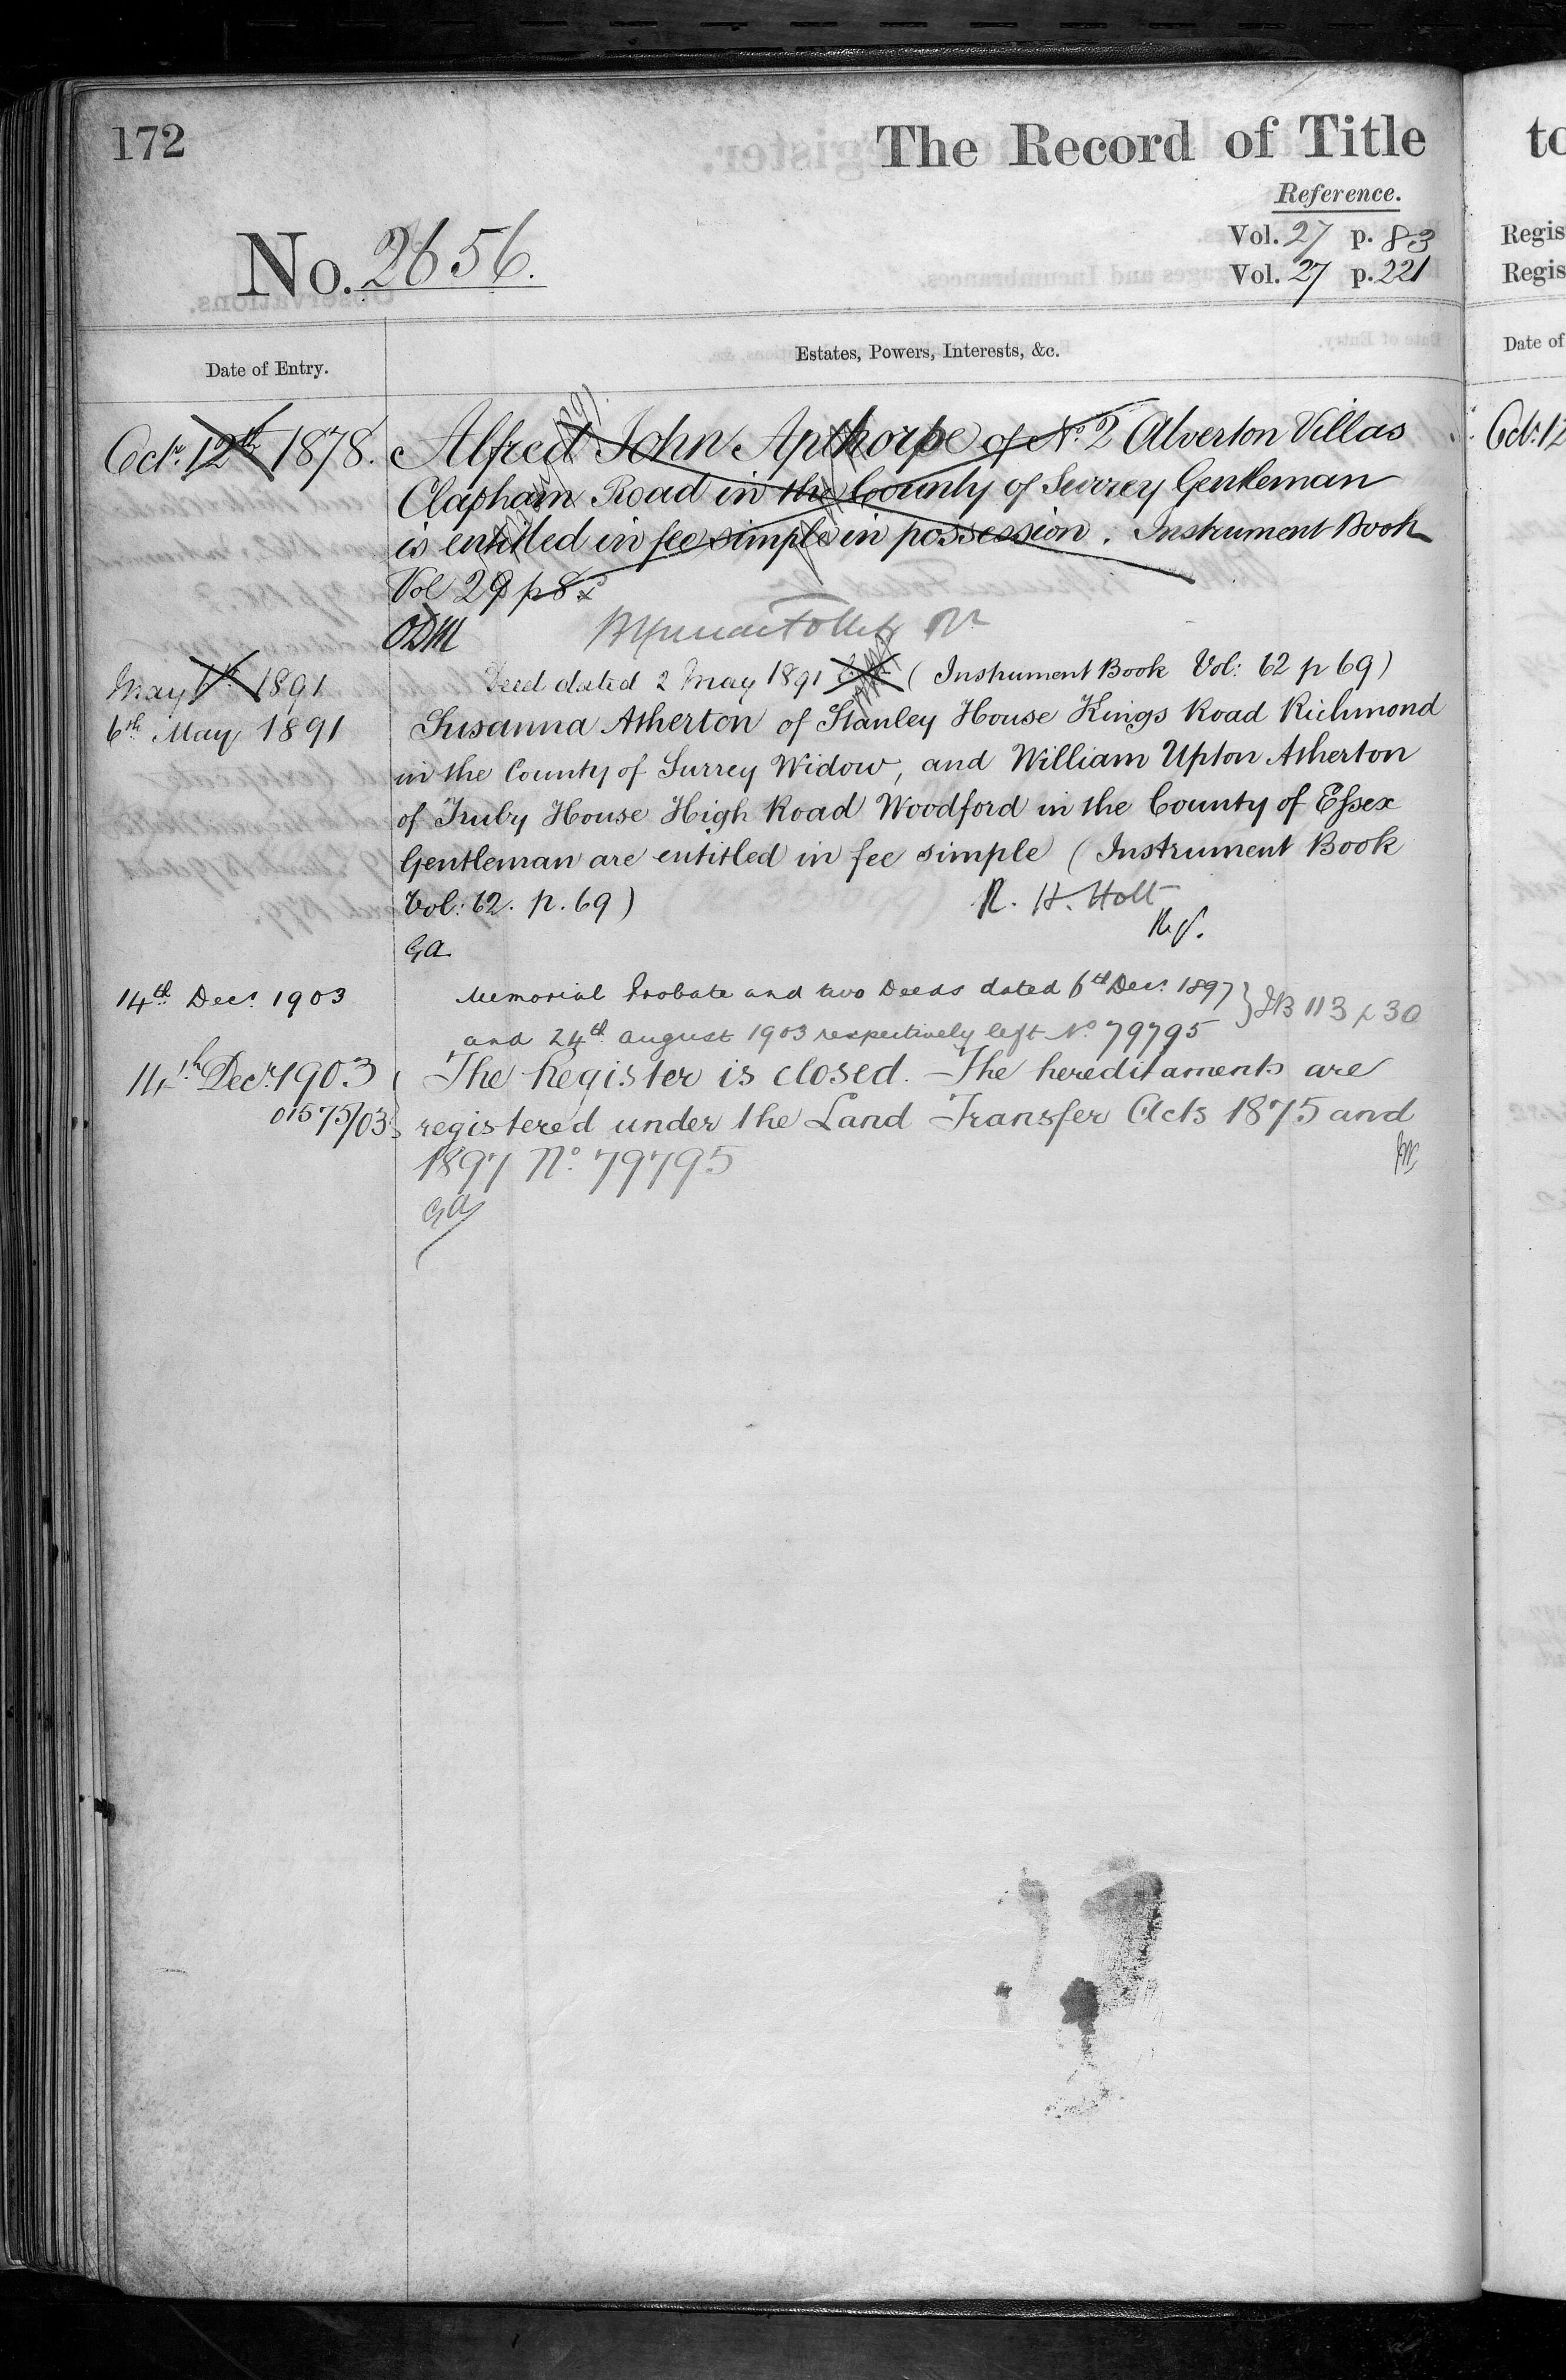 172
The Record of Title
Reference.
No. 2656.
Vol. 27 p. 83
Vol. 27 p. 221
Date of Entry.
Estates, Powers, Interests, &c.
Octr. 12th 1878.
Alfred John Apthorpe of No. 2 Alverton Villas
Clapham Road in the County of Surrey Gentleman
is entitled in fee simple in possession. Instrument Book
Vol 29 p 8
ODM
May 6th 1891
Deed dated 2 May 1891 (Instrument Book Vol: 62 p 69)
6th May 1891
Susanna Atherton of Stanley House Kings Road Richmond
in the County of Surrey Widow, and William Upton Atherton
of Truby House High Road Woodford in the County of Essex
Gentleman are entitled in fee simple (Instrument Book
Vol: 62. p. 69)
R. H. Holt
GA.
14th Decr. 1903
Memorial Probate and two Deeds dated 6th Decr. 1897
and 24th August 1903 respectively left No. 79795
} IB 113 p 30
14th Decr. 1903
01575/03
The Register is closed. The hereditaments are
registered under the Land Transfer Acts 1875 and
1897 No. 79795
GA
to
Regis
Regis
Date of
Octr. 12